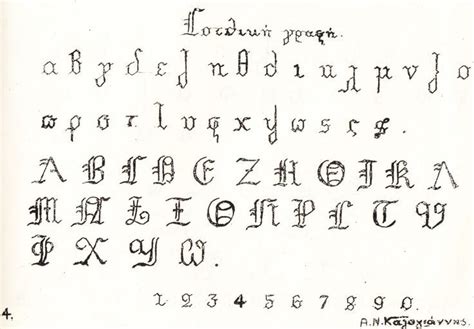 Γοτθική γραφή.
α β γ δ ε ζ η θ ι κ λ μ ν ξ ο
π ρ σ τ υ φ χ ψ ω ς ς.
Α Β Γ Δ Ε Ζ Η Θ Ι Κ Λ
Μ Ν Ξ Ο Π Ρ Σ Τ Υ
Φ Χ Ψ Ω.
1 2 3 4 5 6 7 8 9 0.
4.
Α.Ν.Καλογιάννης.